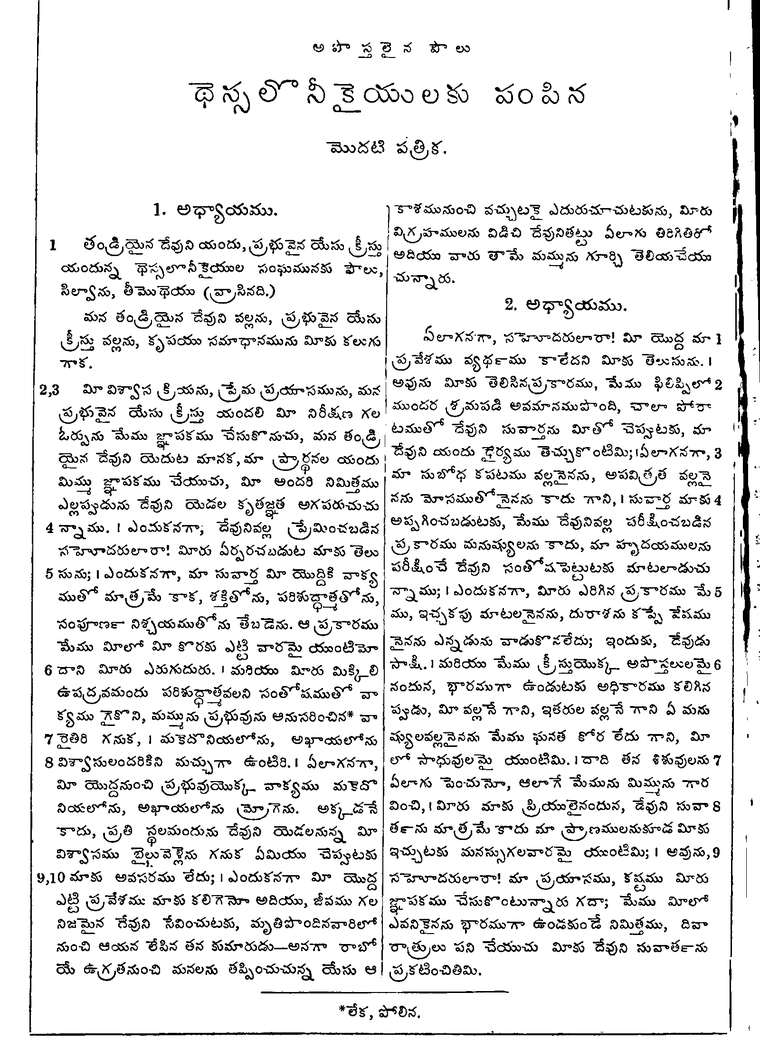 అపొస్తలైన పౌలు
థెస్సలొనీకైయులకు పంపిన
మొదటి పత్రిక.
1. అధ్యాయము.
1 తండ్రియైన దేవుని యందు, ప్రభువైన యేసు క్రీస్తు
యందున్న థెస్సలొనీకైయుల సంఘమునకు పౌలు,
సిల్వాను, తీమొథెయు (వ్రాసినది.)
మన తండ్రియైన దేవుని వల్లను, ప్రభువైన యేసు
క్రీస్తు వల్లను, కృపయు సమాధానమును మీకు కలుగు
గాక.
2,3 మీ విశ్వాస క్రియను, ప్రేమ ప్రయాసమును, మన
ప్రభువైన యేసు క్రీస్తు యందలి మీ నిరీక్షణ గల
ఓర్పును మేము జ్ఞాపకము చేసుకొనుచు, మన తండ్రి
యైన దేవుని యెదుట మానక, మా ప్రార్థనల యందు
మిమ్ము జ్ఞాపకము చేయుచు, మీ అందరి నిమిత్తము
ఎల్లప్పుడును దేవుని యెడల కృతజ్ఞత అగపరుచుచు
4 న్నాము. । ఎందుకనగా; దేవునివల్ల ప్రేమించబడిన
సహోదరులారా! మీరు ఏర్పరచబడుట మాకు తెలు
5 సును; । ఎందుకనగా, మా సువార్త మీ యొద్దికి వాక్య
ముతో మాత్రమే కాక, శక్తితోను, పరిశుద్ధాత్మతోను,
సంపూర్ణ నిశ్చయముతోను తేబడెను. ఆ ప్రకారము
మేము మీలో మీ కొరకు ఎట్టి వారమై యుంటిమో
6 దాని మీరు ఎరుగుదురు. । మరియు మీరు మిక్కిలి
ఉపద్రవమందు పరిశుద్ధాత్మవలని సంతోషముతో వా
క్యము గైకొని, మమ్మును ప్రభువును అనుసరించిన* వా
7 రైతిరి గనుక, । మకెదొనియలోను, అఖాయలోను
8 విశ్వాసులందరికిని మచ్చుగా ఉంటిరి. । ఏలాగనగా,
మీ యొద్దనుంచి ప్రభువుయొక్క వాక్యము మకెదొ
నియలోను, అఖాయలోను మ్రోగెను. అక్కడనే
కాదు, ప్రతి స్థలమందును దేవుని యెడలనున్న మీ
విశ్వాసము బైలువెళ్లెను గనుక ఏమియు చెప్పటకు
9,10 మాకు అవసరము లేదు; । ఎందుకనగా మీ యొద్ద
ఎట్టి ప్రవేశము మాకు కలిగెనొ అదియు, జీవము గల
నిజమైన దేవుని సేవించుటకు, మృతిపొందినవారిలో
నుంచి ఆయన లేపిన తన కుమారుడు—అనగా రాబో
యే ఉగ్రతనుంచి మనలను తప్పించుచున్న యేసు ఆ
కాశమునుంచి వచ్చుటకై ఎదురుచూచుటకును, మీరు
విగ్రహములను విడిచి దేవునితట్టు ఏలాగు తిరిగితిరో
అదియు వారు తామే మమ్మును గూర్చి తెలియచేయు
చున్నారు.
2. అధ్యాయము.
ఏలాగనగా, సహోదరులారా! మీ యొద్ద మా 1
ప్రవేశము వ్యర్థము కాలేదని మీకు తెలుసును. ।
అవును మీకు తెలిసినప్రకారము, మేము ఫిలిప్పిలో 2
ముందర శ్రమపడి అవమానముపొంది, చాలా పోరా
టముతో దేవుని సువార్తను మీతో చెప్పటకు, మా
దేవుని యందు ధైర్యము తెచ్చుకొంటిమి; ।ఏలాగనగా, 3
మా సుబోధ కపటము వల్లనైనను, అపవిత్రత వల్లనై
నను మోసముతోనైనను కాదు గాని, । సువార్త మాకు 4
అప్పగించబడుటకు, మేము దేవునివల్ల పరీక్షించబడిన
ప్రకారము మనుష్యులను కాదు, మా హృదయములను
పరీక్షించే దేవుని సంతోషపెట్టుటకు మాటలాడుచు
న్నాము; । ఎందుకనగా, మీరు ఎరిగిన ప్రకారము మే 5
ము, ఇచ్చకపు మాటలనైనను, దురాశను కప్పే వేషము
నైనను ఎన్నడును వాడుకొనలేదు; ఇందుకు, దేవుడు
సాక్షి. । మరియు మేము క్రీస్తుయొక్క అపొస్తలులమై 6
నందున, భారముగా ఉండుటకు అధికారము కలిగిన
ప్పుడు, మీ వల్లనే గాని, ఇతరుల వల్లనే గాని ఏ మను
ష్యులవల్లనైనను మేము ఘనత కోర లేదు గాని, మీ
లో సాధువులమై యుంటిమి. । దాది తన శిశువులను 7
ఏలాగు పెంచునో, ఆలాగే మేమును మిమ్మును గార
వించి, । మీరు మాకు ప్రియులైనందున, దేవుని సువా 8
ర్తను మాత్రమే కాదు మా ప్రాణములనుకూడ మీకు
ఇచ్చుటకు మనస్సుగలవారమై యుంటిమి; । అవును, 9
సహోదరులారా! మా ప్రయాసము, కష్టము మీరు
జ్ఞాపకము చేసుకొంటున్నారు గదా; మేము మీలో
ఎవనికైనను భారముగా ఉండకుండే నిమిత్తము, దివా
రాత్రులు పని చేయుచు మీకు దేవుని సువార్తను
ప్రకటించితిమి.
*లేక, పోలిన.